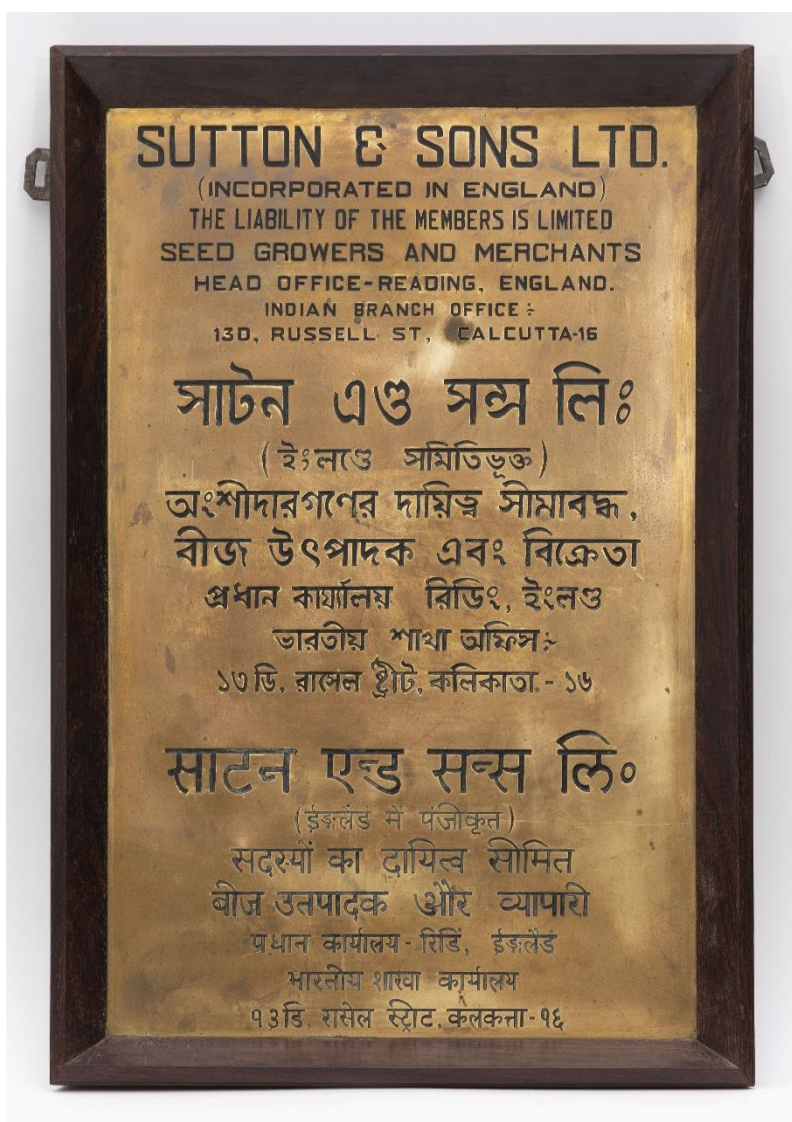 SUTTON & SONS LTD.
(INCORPORATED IN ENGLAND)
THE LIABILITY OF THE MEMBERS IS LIMITED
SEED GROWERS AND MERCHANTS
HEAD OFFICE-READING, ENGLAND.
INDIAN BRANCH OFFICE ÷
13D, RUSSELL ST, CALCUTTA-16
সাটন এণ্ড সন্স লিঃ
(ইংলণ্ডে সমিতিভূক্ত)
অংশীদারগণের দায়িত্ব সীমাবদ্ধ,
বীজ উৎপাদক এবং বিক্রেতা
প্রধান কার্য্যালয় রিডিং, ইংলণ্ড
ভারতীয় শাখা অফিস÷
১৩ডি, রাসেল ষ্ট্রীট, কলিকাতা - ১৬
साटन एन्ड सन्स लि॰
(ईङ्गलैंड में पंजीकृत)
सदस्यों का दायित्व सीमित
बीज उतपादक और व्यापारी
प्रधान कार्यालय - रिडिं, ईङ्गलैंड
भारतीय शाखा कार्यालय
१३डि, रासेल स्ट्रीट, कलकत्ता-१६